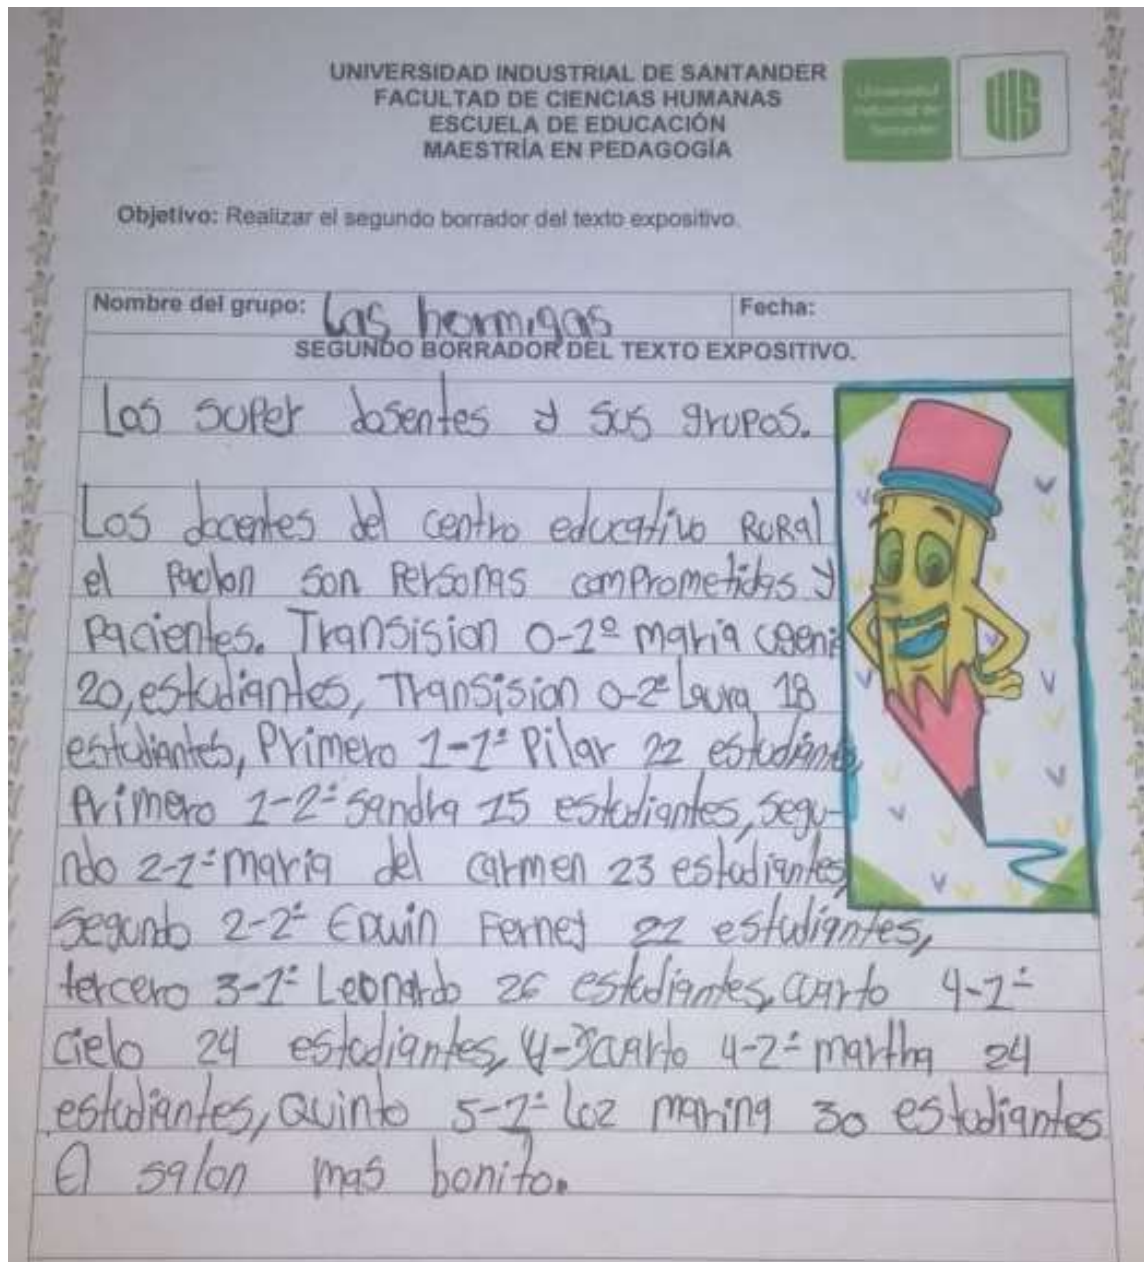 UNIVERSIDAD INDUSTRIAL DE SANTANDER
FACULTAD DE CIENCIAS HUMANAS
ESCUELA DE EDUCACIÓN
MAESTRÍA EN PEDAGOGÍA
Universidad
Industrial de
Santander
UIS
Objetivo: Realizar el segundo borrador del texto expositivo.
Nombre del grupo: Las hormigas
Fecha:
SEGUNDO BORRADOR DEL TEXTO EXPOSITIVO.
Los super dosentes y sus grupos.
Los docentes del centro educativo RURal
el son Personas comprometidas y
pacientes. Transision 0-1º maria
20, estudiantes, Transision 0-2º Laura 18
estudiantes, Primero 1-1º Pilar 22 estudiantes,
Primero 1-2º Sandra 15 estudiantes, segu-
ndo 2-1º maria del carmen 23 estudiantes,
Segundo 2-2º EDwin Ferney estudiantes,
tercero 3-1º Leonardo 26 estudiantes, cuarto 4-1º
cielo 24 estudiantes, cuarto 4-2º martha 24
estudiantes, Quinto 5-1º Luz marina 30 estudiantes
El salon mas bonito.